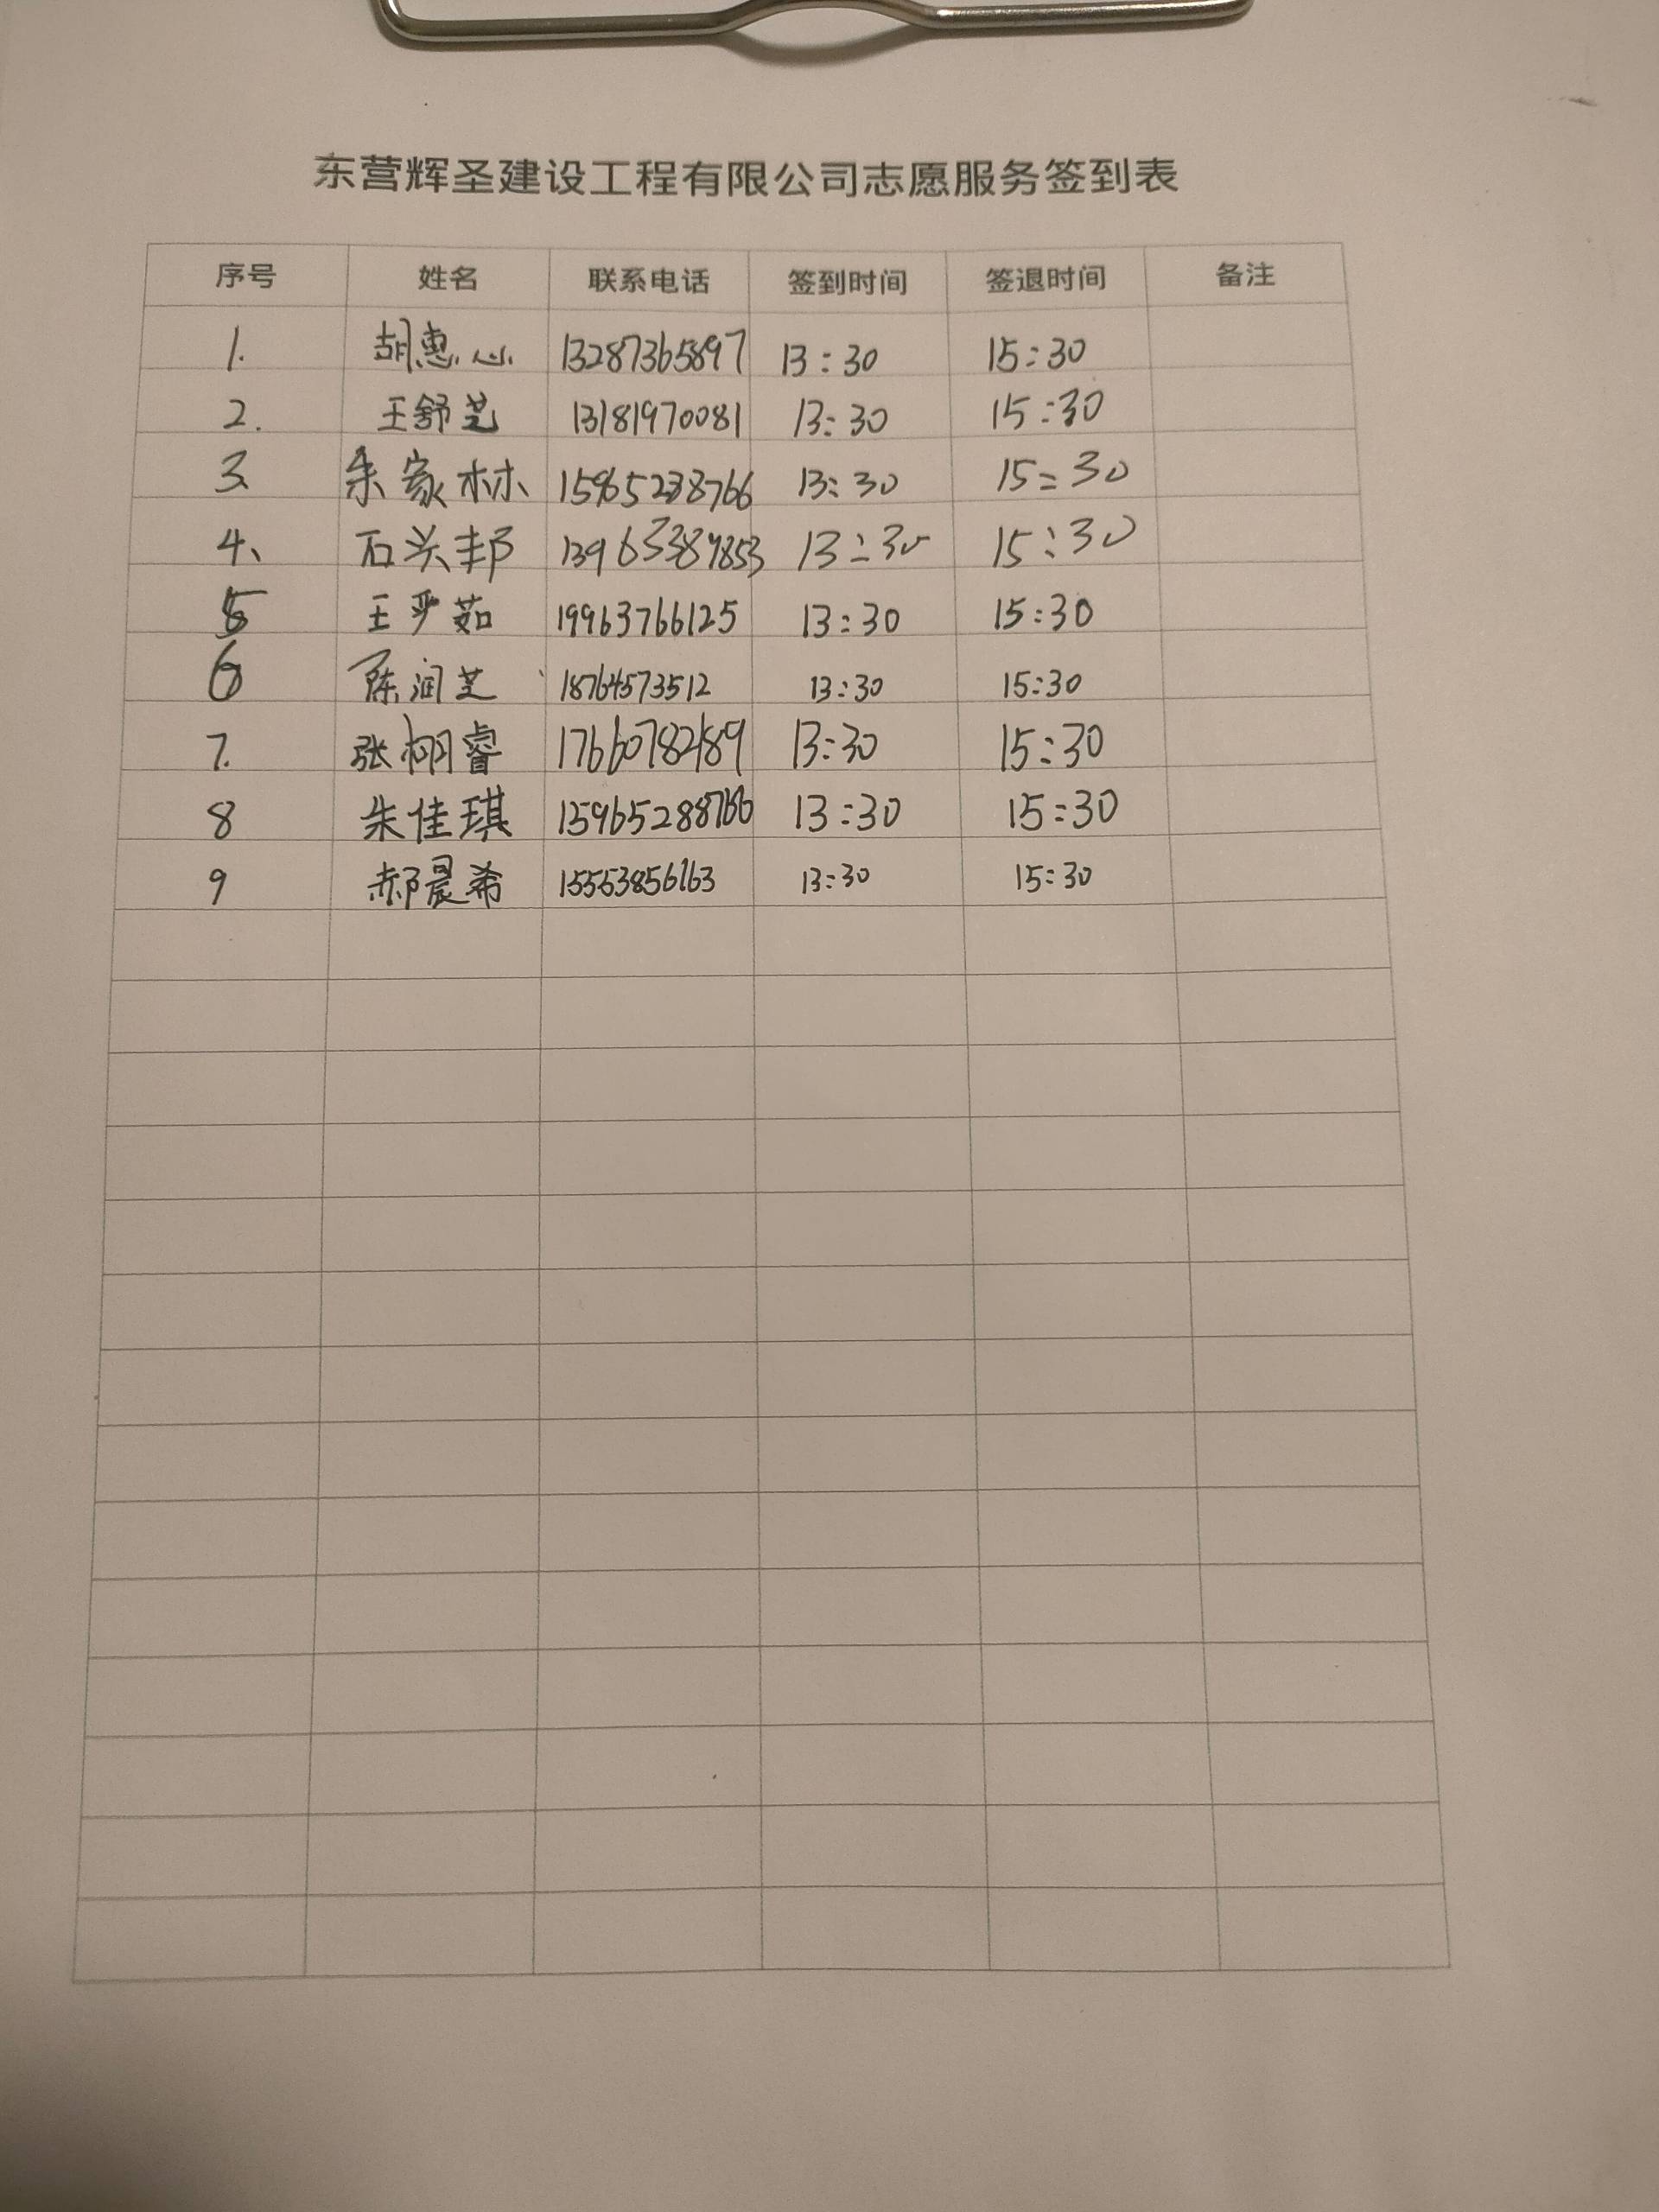 东营辉圣建设工程有限公司志愿服务签到表
序号 姓名 联系电话 签到时间 签退时间 备注
1. 胡惠心 13287365897 13:30 15:30
2. 王舒芝 13181970081 13:30 15:30
3 朱家林 13:30 15:30
4、 石头邦 13:30 15:30
5 王严茹 19963766125 13:30 15:30
6 陈润芝 18764573512 13:30 15:30
7. 张栩睿 17660782189 13:30 15:30
8 朱佳琪 15965288766 13:30 15:30
9 郝晨希 13:30 15:30